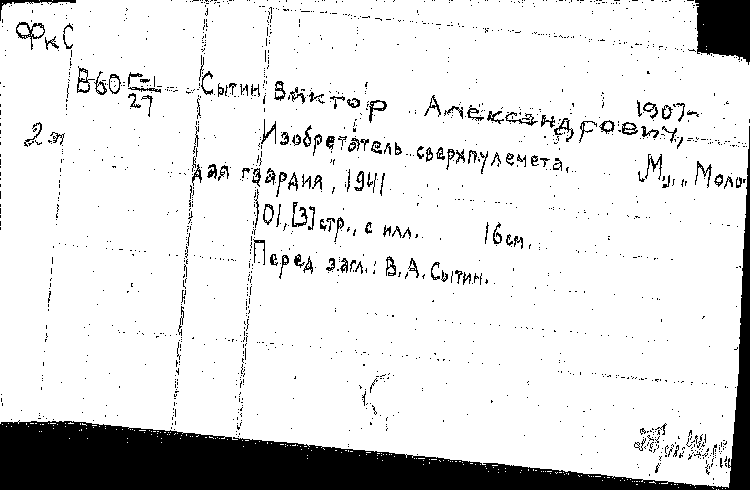 ФкС
В60 Г-1/27 Сытин, Виктор Александрович, 1907-
2 эк
Изобретатель сверхпулемета. М., „Моло-
дая гвардия", 1941
101, [3] стр., с илл. 16 см.
Перед загл.: В. А. Сытин.